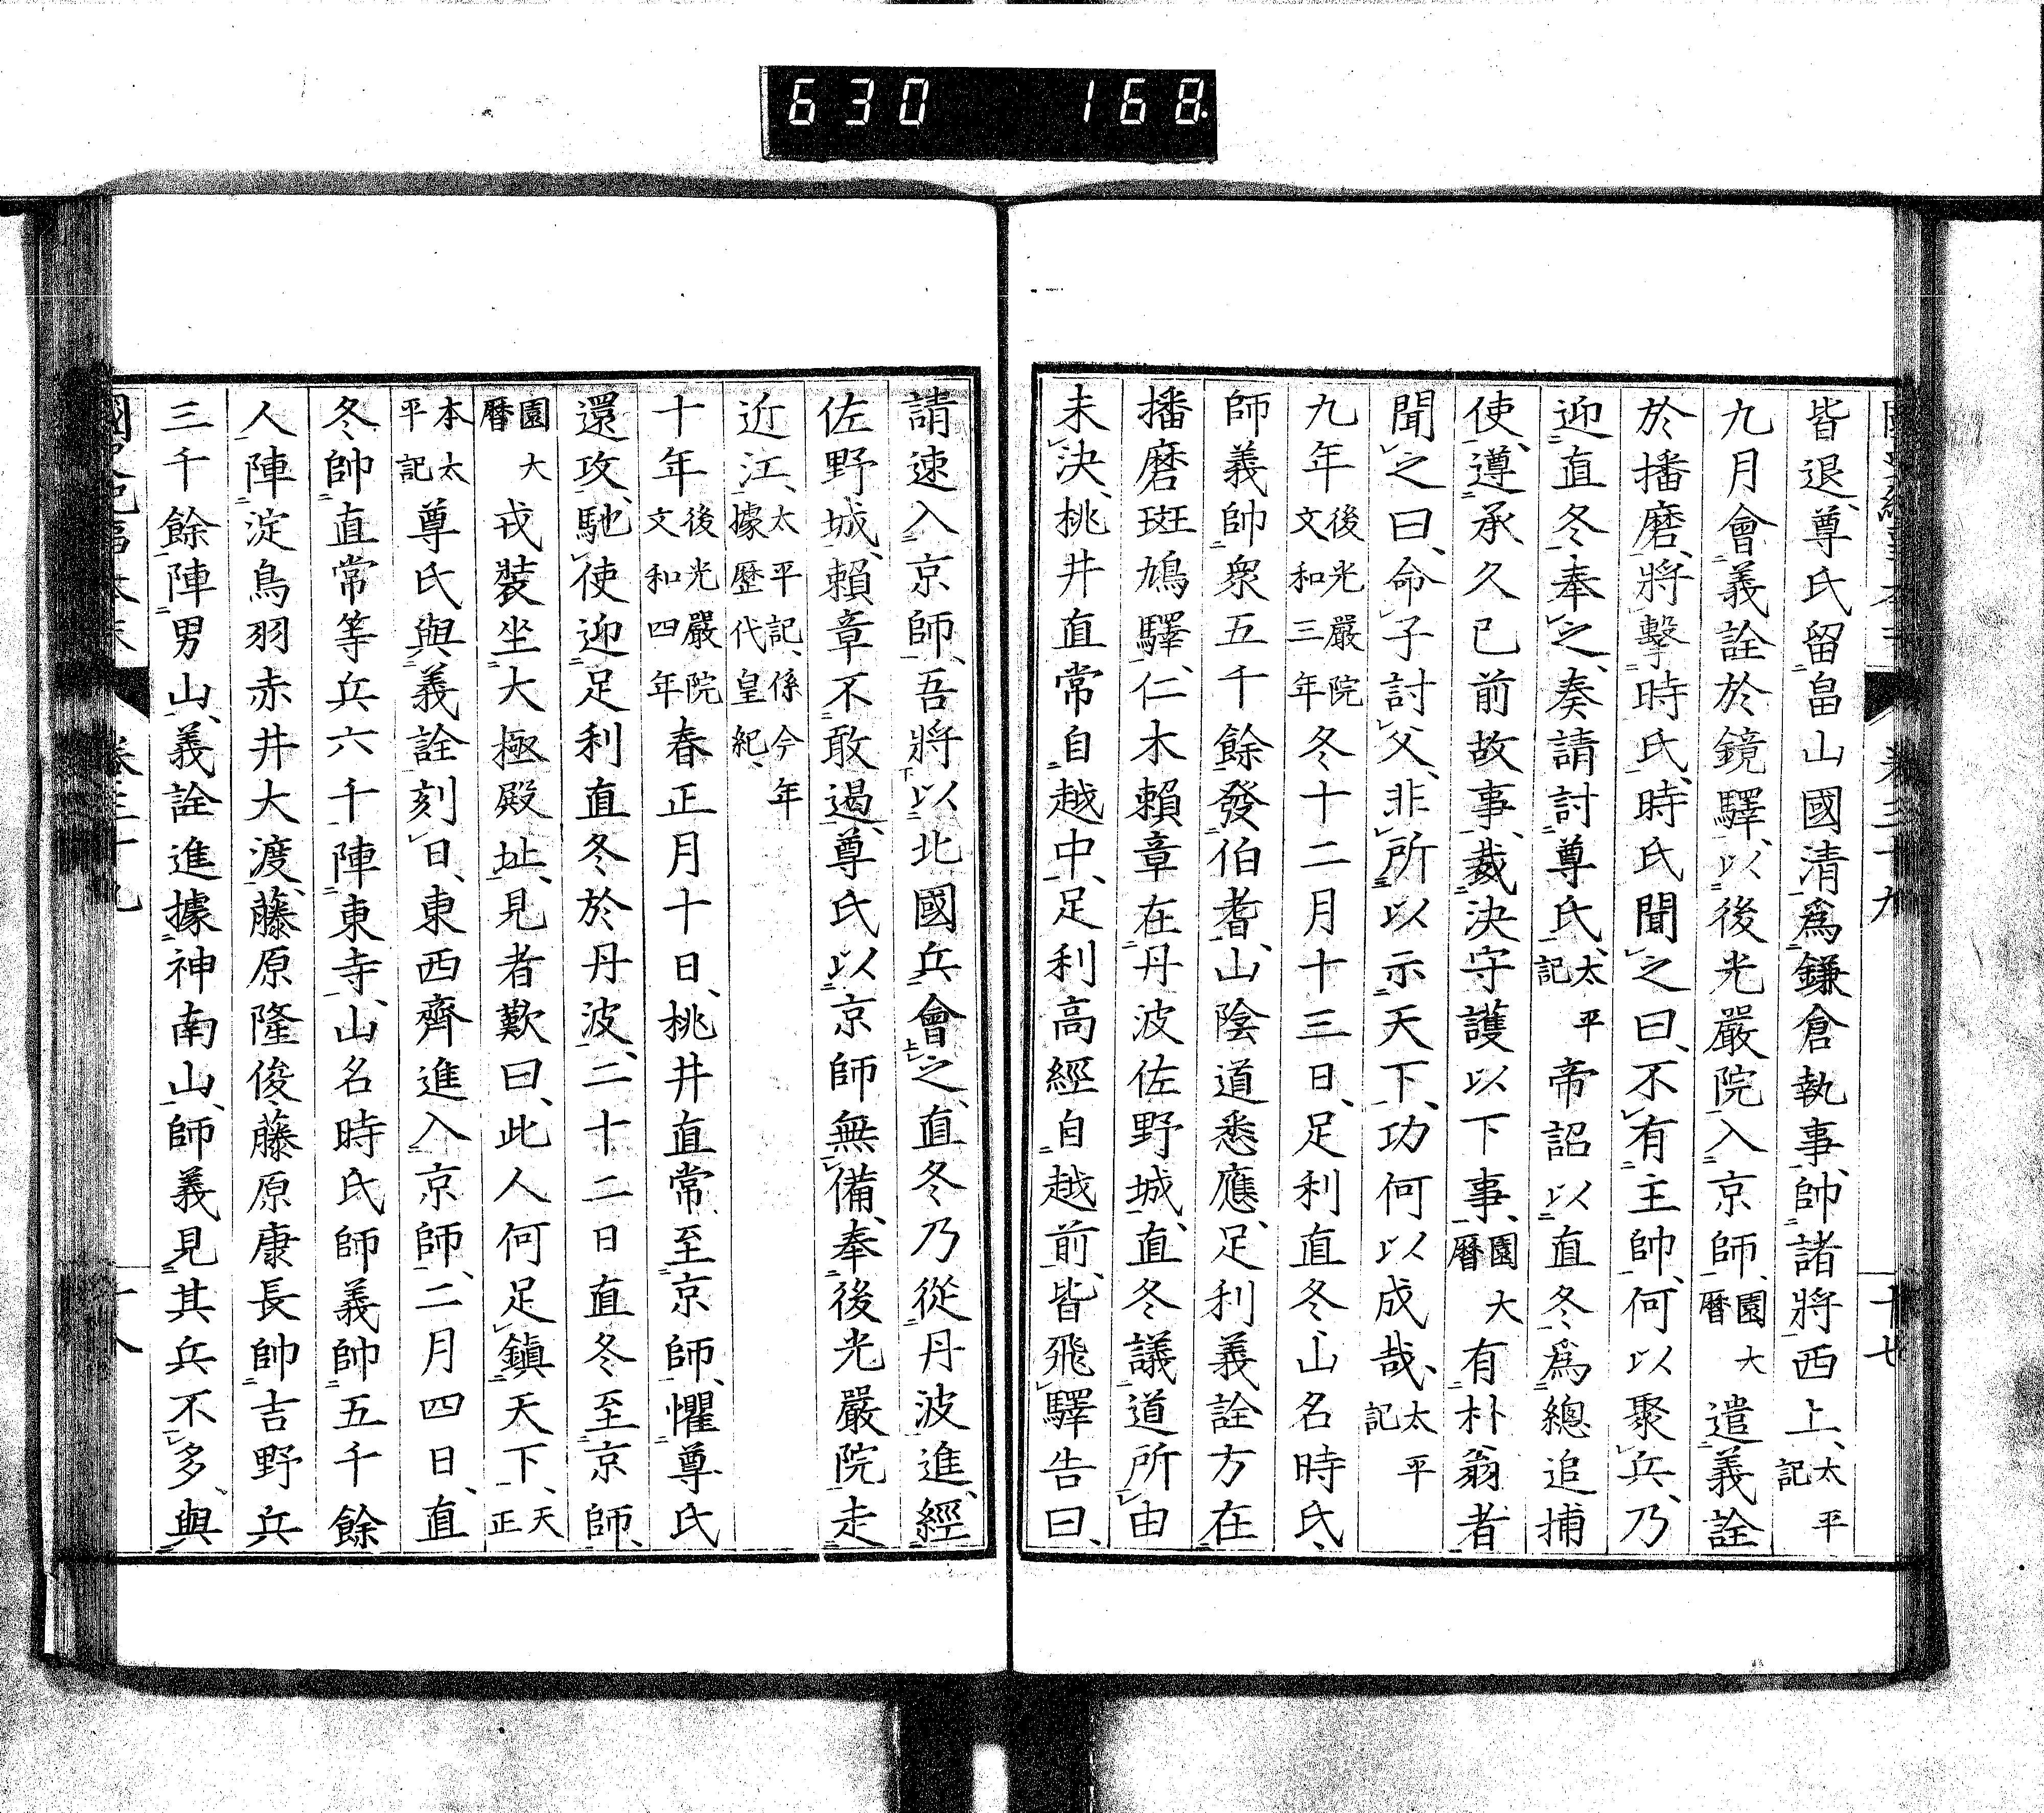 630 168.
卷三十九
十七
皆退、尊氏留畠山國清爲鎌倉執事、帥諸將西上、太平記
九月會義詮於鏡驛、以後光嚴院入京師、園大曆遣義詮
於播磨、將擊時氏、時氏聞之曰、不有主帥、何以聚兵、乃
迎直冬奉之、奏請討尊氏、太平記帝詔以直冬爲總追捕
使、遵承久已前故事、裁決守護以下事、園大曆有朴翁者
聞之曰、命子討父、非所以示天下、功何以成哉、太平記
九年後光嚴院文和三年冬十二月十三日、足利直冬、山名時氏、
師義帥衆五千餘發伯耆、山陰道悉應、足利義詮方在
播磨斑鳩驛、仁木賴章在丹波佐野城、直冬議道所由
未決、桃井直常自越中、足利高經自越前、皆飛驛告曰、
請速入京師、吾將以北國兵會之、直冬乃從丹波進、經
佐野城、賴章不敢遏、尊氏以京師無備、奉後光嚴院走
近江、太平記、係今年據歷代皇紀、
十年後光嚴院文和四年春正月十日、桃井直常至京師、懼尊氏
還攻、馳使迎足利直冬於丹波、二十二日直冬至京師、
園大曆戎裝坐大極殿址、見者歎曰、此人何足鎮天下、天正
本太平記尊氏與義詮刻日、東西齊進入京師、二月四日、直
冬帥直常等兵六千陣東寺、山名時氏師義帥五千餘
人陣淀鳥羽赤井大渡、藤原隆俊藤原康長帥吉野兵
三千餘陣男山、義詮進據神南山、師義見其兵不多、與